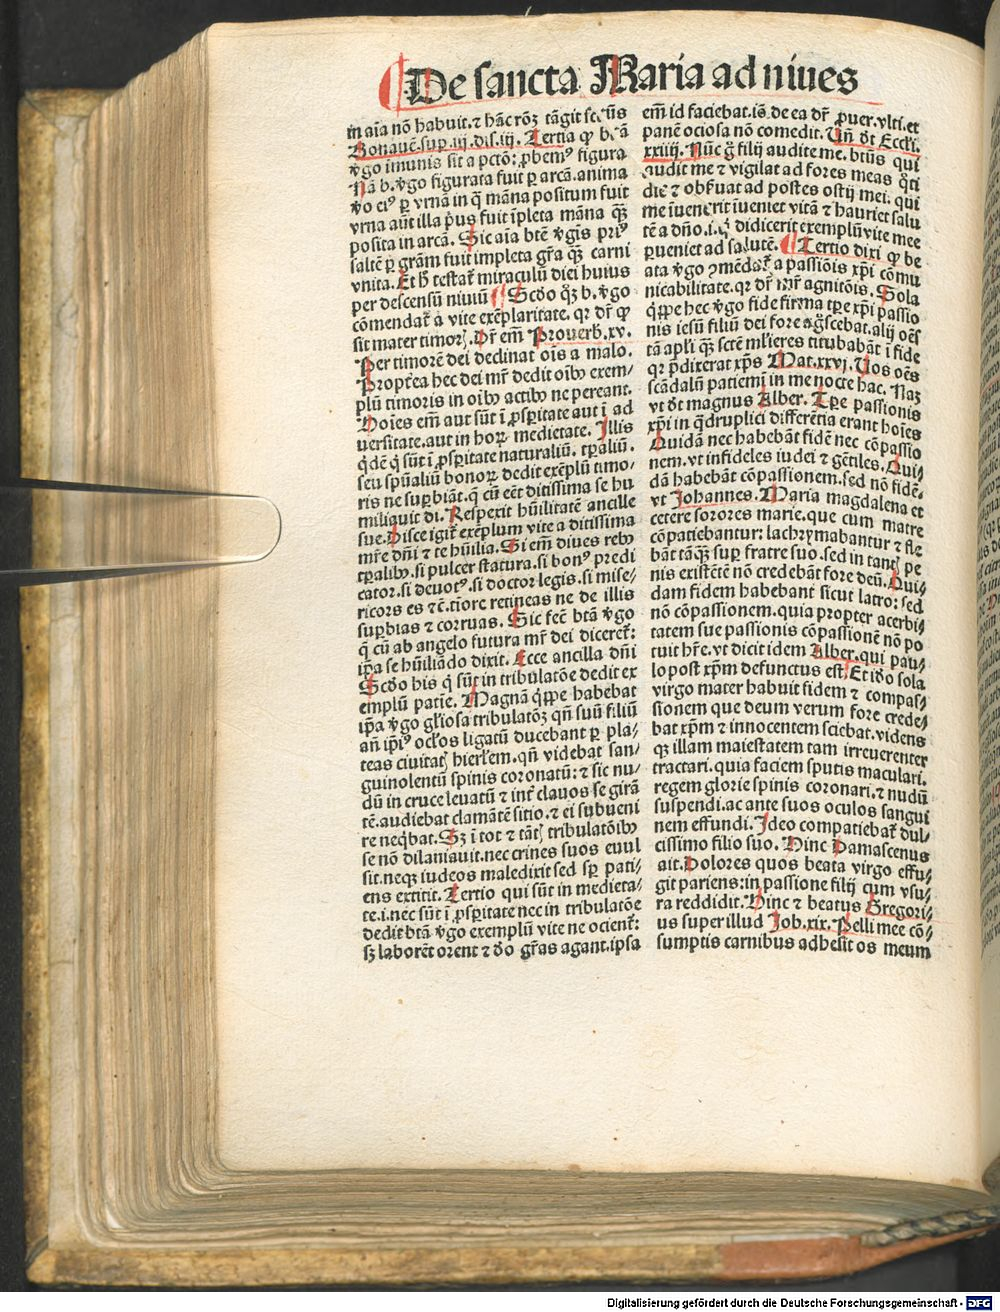 De sancta Maria ad niues
in aīa nō habuit. ⁊ hāc rōꝫ tāgit sctūs
Bonauē. sup. iij. dis. iij. Tertia ꝙ b̄tā
v̄go imunis sit a pctō: ꝓbem⁹ figura
Nā b. v̄go figurata fuit ꝑ arcā. anima
v̄o ei⁹ ꝑ vrnā in q̄ māna positum fuit
vrna aūt illa pⁱus fuit īpleta māna qꝫ
posita in arcā. Sic aīa btē v̄gis pri⁹
saltē ꝑ grām fuit impleta gr̄a qꝫ carni
vnita. Et h̄ testat᷑ miraculū diei huius
per descensū niuiū ¶ Scd̄o qꝫ b. v̄go
cōmendat᷑ a vite exēplaritate. qꝛ dr̄ ꝙ
sit mater timoꝝ. Dr̄ em̄ Prouerb. xv.
Per timorē dei declinat oīs a malo.
Proptea hec dei mr̄ dedit oībꝰ exem-
plū timoris in oībꝰ actibꝰ ne pereant.
Hoīes em̄ aut sūt ī ꝓspitate aut ī ad
uersitate. aut in hoꝝ medietate. Illis
q̄dē q̄ sūt ī ꝓspitate naturaliū. tꝑaliū.
seu spūaliū bonoꝝ dedit exēplū timo-
ris ne suꝑbiāt. q̄ cū eēt ditissima se hu
miliauit di. Respexit hūilitatē ancille
sue. Disce igit᷑ exēplum vite a ditissima
mr̄e dn̄i ⁊ te hūilia. Si em̄ diues rebꝰ
tꝑalibꝰ. si pulcer statura. si bon⁹ predi
cator. si deuot⁹. si doctor legis. si mise-
ricors es ⁊ē. tiorē retineas ne de illis
suꝑbias ⁊ corruas. Sic fec̄ btā v̄go
q̄ cū ab angelo futura mr̄ dei diceret᷑:
ip̄a se hūiliādo dixit. Ecce ancilla dn̄i
Scd̄o his q̄ sūt in tribulatōe dedit ex
emplū patiē. Magnā q̄ꝑpe habebat
ip̄a v̄go gl̄iosa tribulatōꝫ qn̄ suū filiū
añ ip̄i⁹ oclos ligatū ducebant ꝑ pla-
teas ciuitatꝭ hierl̄em. qn̄ videbat san-
guinolentū spinis coronatū: ⁊ sic nu-
dū in cruce leuatū ⁊ int̄ clauos se girā
tē. audiebat clamātē sitio. ⁊ ei subueni
re neq̄bat. Sꝫ ī tot ⁊ tātꝭ tribulatōibꝰ
se nō dilaniauit. nec crines suos euul
sit. neqꝫ iudeos maledixit sed sꝑ pati-
ens extitit. Tertio qui sūt in medieta-
te. i. nec sūt ī ꝓspitate nec in tribulatōe
dedit btā v̄go exemplū vite ne ocient᷑:
sꝫ laborēt orent ⁊ d̄o gr̄as agant. ipsa
em̄ id faciebat. iō de ea dr̄ ꝓuer. vlti. et
panē ociosa nō comedit. Vn̄ dt Eccli.
xxiiij. Nūc g̊ filij audite me. btūs qui
audit me ⁊ vigilat ad fores meas q̊ti
die ⁊ obseruat ad postes ostij mei. qui
me īuenerit īueniet vitā ⁊ hauriet salu
tē a dn̄o. i. q̄ didicerit exemplū vite mee
ꝑueniet ad salutē. ¶ Tertio dixi ꝙ be
ata v̄go ꝯmēdat᷑ a passiōis xp̄i cōmu
nicabilitate. qꝛ dr̄ mr̄ agnitōis. Sola
q̄ꝑpe hec v̄go fide firma tꝑe xp̄i passio
nis iesū filiū dei fore agscebat. alij oēs
tā apl̄i qꝫ sctē ml̄ieres titubabāt ī fide
qꝛ p̄dixerat xp̄s Mat. xxvj. Uos oēs
scādalū patiemī in me nocte hac. Naꝫ
vt dt magnus Alber. Tꝑe passionis
xp̄i in q̄druplici differētia erant hoīes
Quidā nec habebāt fidē nec cōpassio
nem. vt infideles iudei ⁊ gētiles. Qui
dā habebāt cōpassionem. sed nō fidē.
vt Johannes. Maria magdalena et
cetere sorores marie. que cum matre
cōpatiebantur: lachrymabantur ⁊ fle
bāt tāqꝫ suꝑ fratre suo. sed in tantꝭ pe
nis existētē nō credebāt fore deū. Qui
dam fidem habebant sicut latro: sed
nō cōpassionem. quia propter acerbi
tatem sue passionis cōpassionē nō po
tuit hr̄e. vt dicit idem Alber. qui pau
lo post xp̄m defunctus est. Et iō sola
virgo mater habuit fidem ⁊ compas
sionem que deum verum fore crede
bat xp̄m ⁊ innocentem sciebat. videns
qꝫ illam maiestatem tam irreuerenter
tractari. quia faciem sputis maculari.
regem glorie spinis coronari. ⁊ nudū
suspendi. ac ante suos oculos sangui
nem effundi. Ideo compatiebat᷑ dul
cissimo filio suo. Hinc Damascenus
ait. Dolores quos beata virgo effu
git pariens: in passione filij cum vsu
ra reddidit. Hinc ⁊ beatus Gregori
us super illud Job. xix. Pelli mee cō
sumptis carnibus adhesit os meum
Digitalisierung gefördert durch die Deutsche Forschungsgemeinschaft - DFG